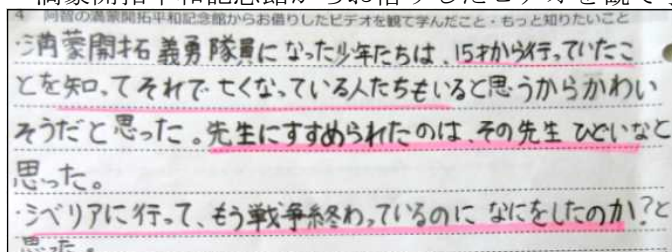 満蒙開拓平和記念館からお借りしたビデオを観て
4 阿智の満蒙開拓平和記念館からお借りしたビデオを観て学んだこと・もっと知りたいこと
・満蒙開拓義勇隊員になった少年たちは、15才から行っていたこ
とを知ってそれで亡くなっている人たちもいると思うからかわい
そうだと思った。先生にすすめられたのは、その先生ひどいなと
思った。
・シベリアに行って、もう戦争終わっているのになにをしたのか?と
思った。